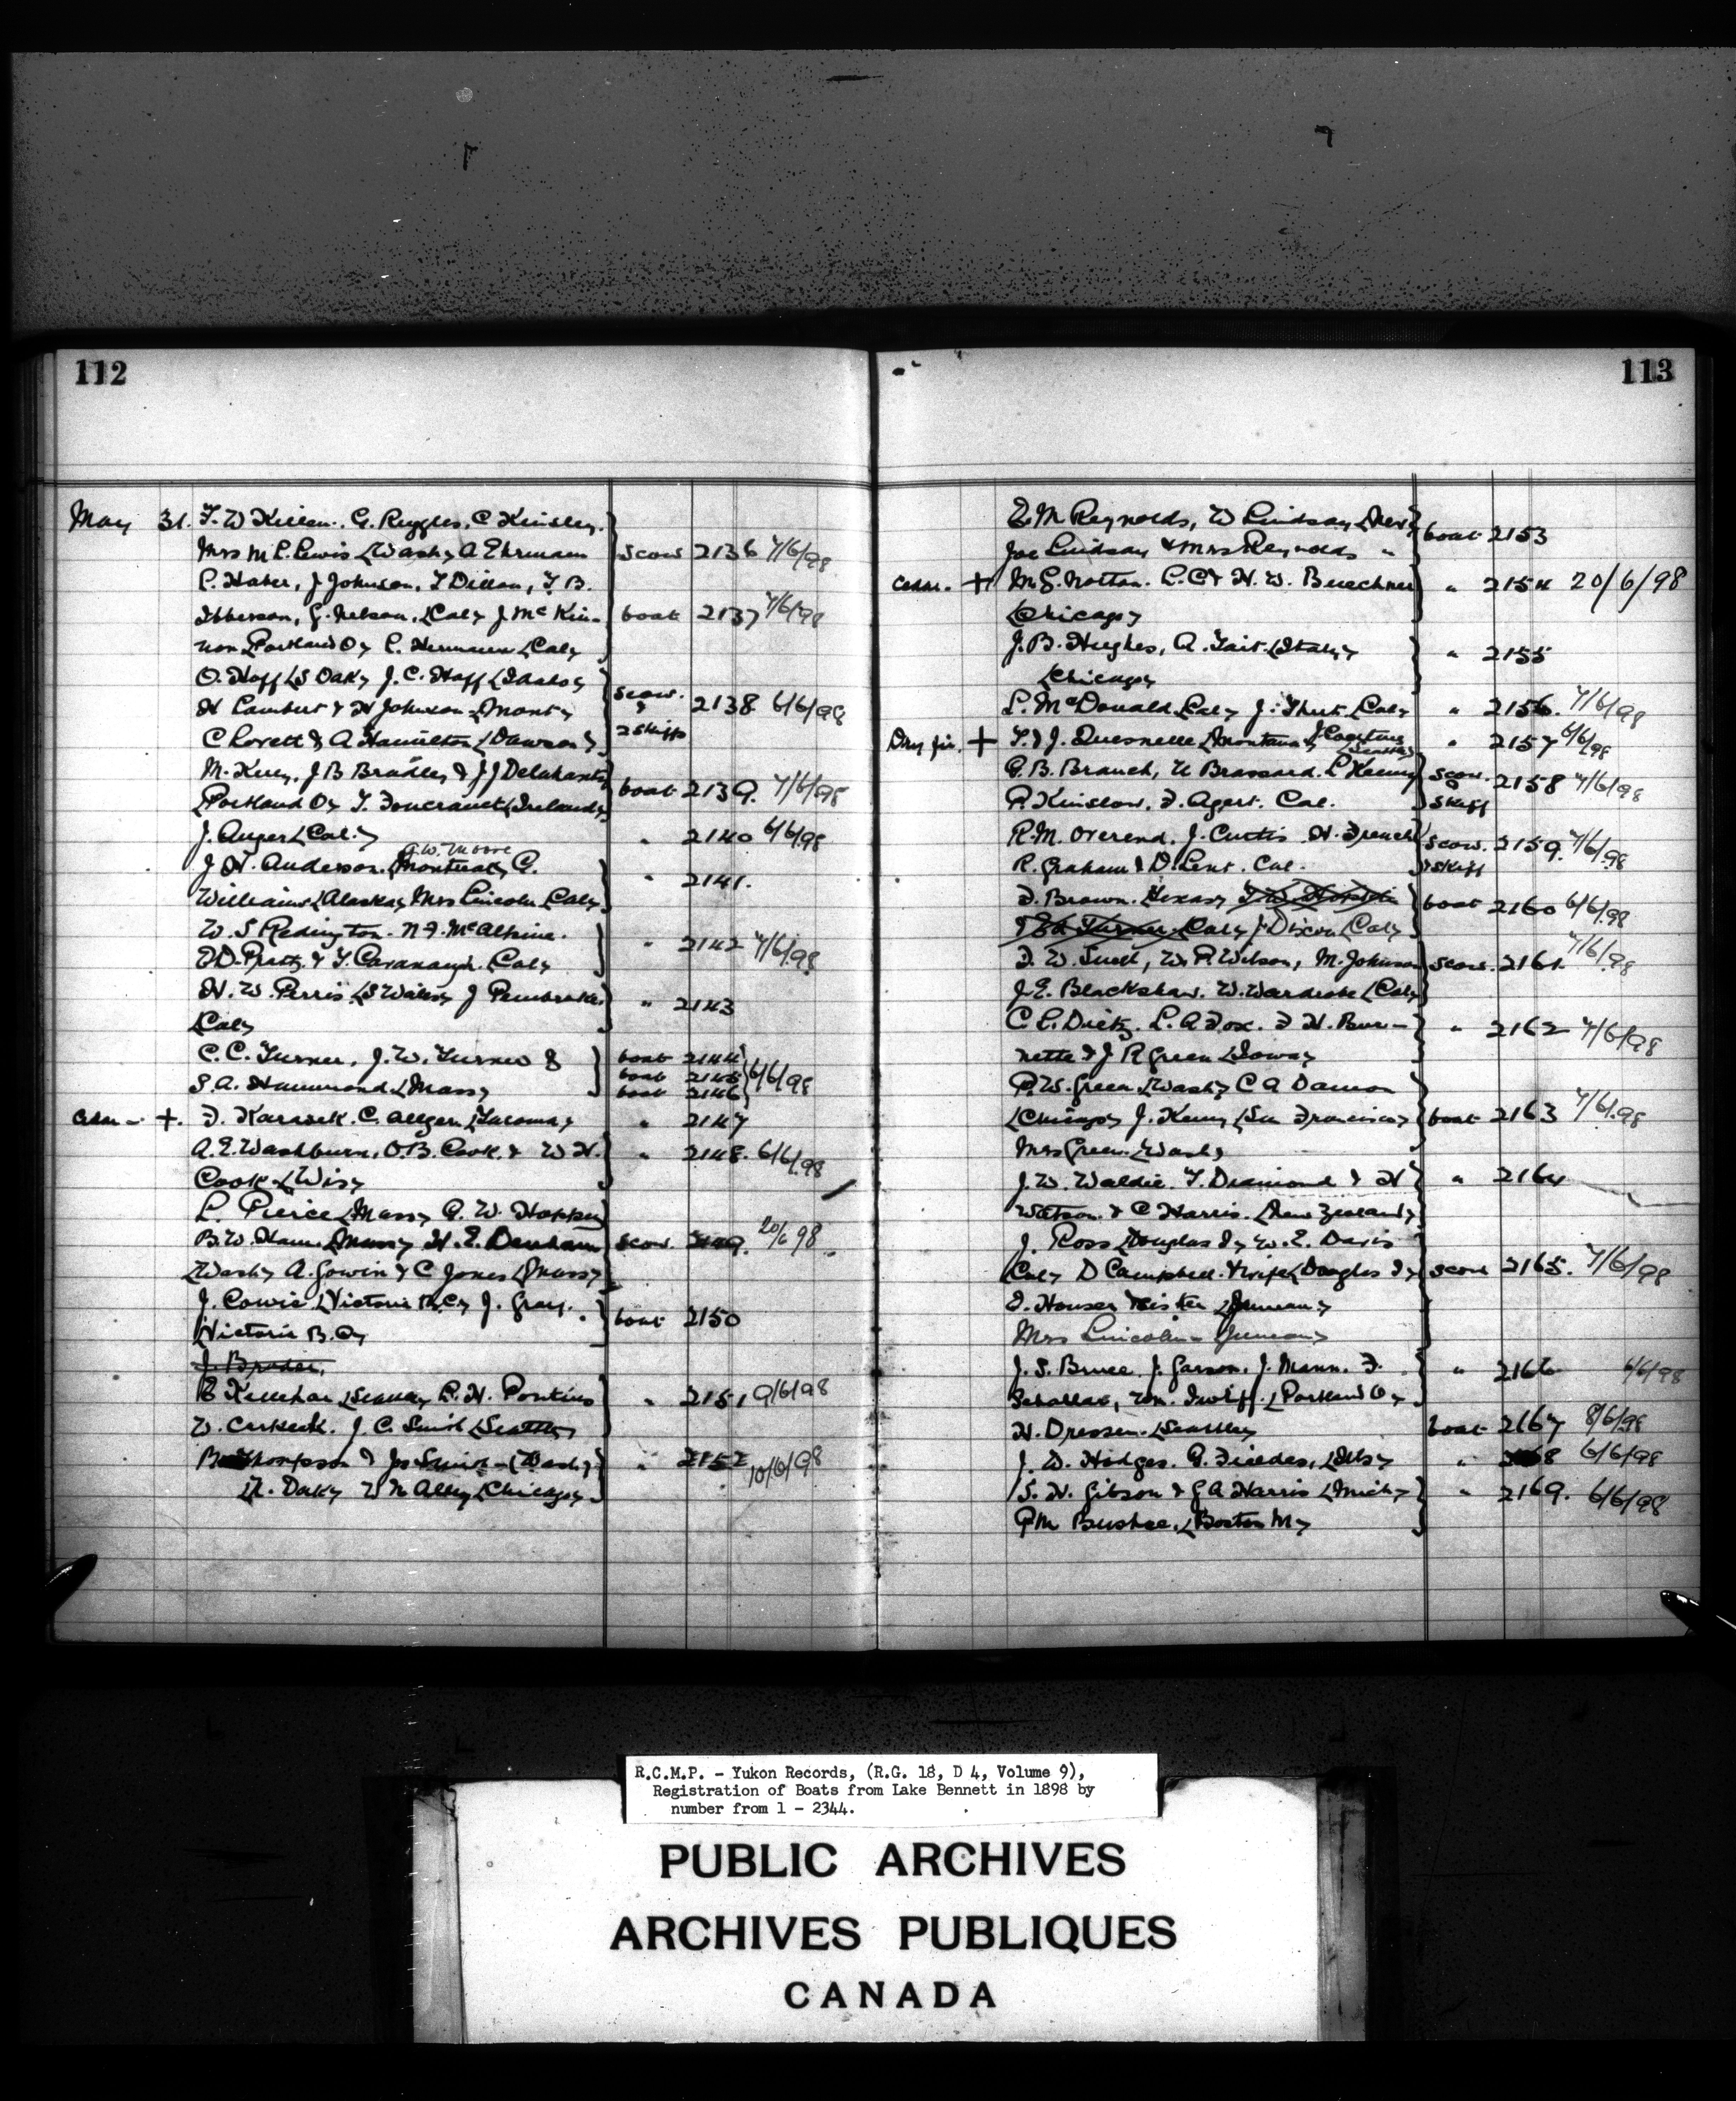 112
May 31. T. W Killen. G. Ruggles. C Kinsley.
Mrs M L. Lewis (Wash) A Ehrmann scow 2136 7/6/98
L. Haber, J Johnson, T Dillon, T B.
Ibberson, G. Nelson. (Cal) J. McKin- boat 2137 7/6/98
non (Portland O) L. Hermann (Cal)
O. Hoff (S Oak) J. C. Hoff (Idaho)
H Lambert & H Johnson (Mont) scow. & 2138 6/6/98
C Lovett & A Hamilton (Dawson) 2 skiffs
M. Kuey, J B Bradley & J J Delahanty
(Portland O) T. (Ireland) boat 2139. 7/6/98
J. Auger (Cal.) " 2140 6/6/98
A. W. Moore
J H. Anderson. (Montreal) C. " 2141.
Williams (Alaska) Mrs Lincoln (Cal)
W. S Redington. N. F. McAlpine. " 2142 7/6/98
D. Pratt & T. Cavanaugh. (Cal)
H. W. Perris (S Wales) J Pembroke. " 2143
(Cal)
C. C. Turner, J. W. Turner & boat 2144
S. A. Hammond (Mass) boat 2145 6/6/98
boat 2146
+. F. Karasek. C. Allgern (Tacoma) " 2147
A. E. Washburn, O. B. Cook & W H. " 2148. 6/6/98
Cook (Wis)
L. Pierce (Mass) G. W. Hopper
B. W. Ham. (Mass) H. E. Denham scow. 2149. 20/6 98
(Wash) A. Gowin & C Jones (Mass)
J. Cowie (Victoria B.C) J. Gray. boat 2150
(Victoria B. C)
J. Broder.
E Kellehar (Seattle) L. H. Pontius " 2151 9/6/98
W. Corkeek. J. C. Smith (Seattle)
Thompson & Jos Smith (Wash) " 2152 10/6/98
(N. Dak) W N Alley (Chicago)
113
E. M Reynolds, W Lindsay (Nev) boat 2153
Joe Lindsay & Mrs Reynolds "
+ M G. Notton. L. C & H. W. Buechner " 2154 20/6/98
(Chicago)
J. B. Hughes, A. Tait (Italy) " 2155
(Chicago)
L. McDonald (Cal) J. (Cal) " 2156. 7/6/98
Dry fir. + T. & J. Quesnelle (Montana) (Seattle) " 2157 6/6/98
G. B. Branch, U Brassard. L Keeny scow. & 2158 7/6/98
R. Kinslow, F. Agert. Cal. skiff
R. M. Overend. J. Curtis. H. French scow. 2159. 7/6/98
R. Graham & D. Lent. Cal. & skiff
F. Brown (Texas) boat 2160 6/6/98
Turner (Cal) J. Dixon (Cal)
F. W. W. P. Wilson, M. Johnson scow. 2161. 7/6/98
J. E. Blackshaw. W. Wardrobe (Cal)
C. E. Dietz. L. A Fox. F H. Bur- " 2162 7/6/98
nette & J R Green (Iowa)
P. W. Green (Wash) C A Damon
(Chicago) J. Keny (San Francisco) boat 2163 7/6/98
Mrs Green. (Wash)
J. W. Waldie. T. Diamond & H " 2164
Watson & C Harris. (New Zealand)
J. Ross (Douglas I) W. E. Davis
(Cal) D Campbell. & wife (Douglas I) scow 2165. 7/6/98
F. Houser & sister (Juneau)
Mrs Lincoln - Juneau
J. S. Bruce. J. Garson. J. Mann. F. " 2166 6/6/98
Wm. (Portland O)
H. Dressen. (Seattle) boat 2167 8/6/98
J. W. Hodges. G. (Ills) " 2168 6/6/98
S. H. Gibson & G A Harris (Mich) " 2169. 6/6/98
G M Bushee. (Boston M)
R.C.M.P. - Yukon Records, (R.G. 18, D 4, Volume 9),
Registration of Boats from Lake Bennett in 1898 by
number from 1 - 2344.
PUBLIC ARCHIVES
ARCHIVES PUBLIQUES
CANADA